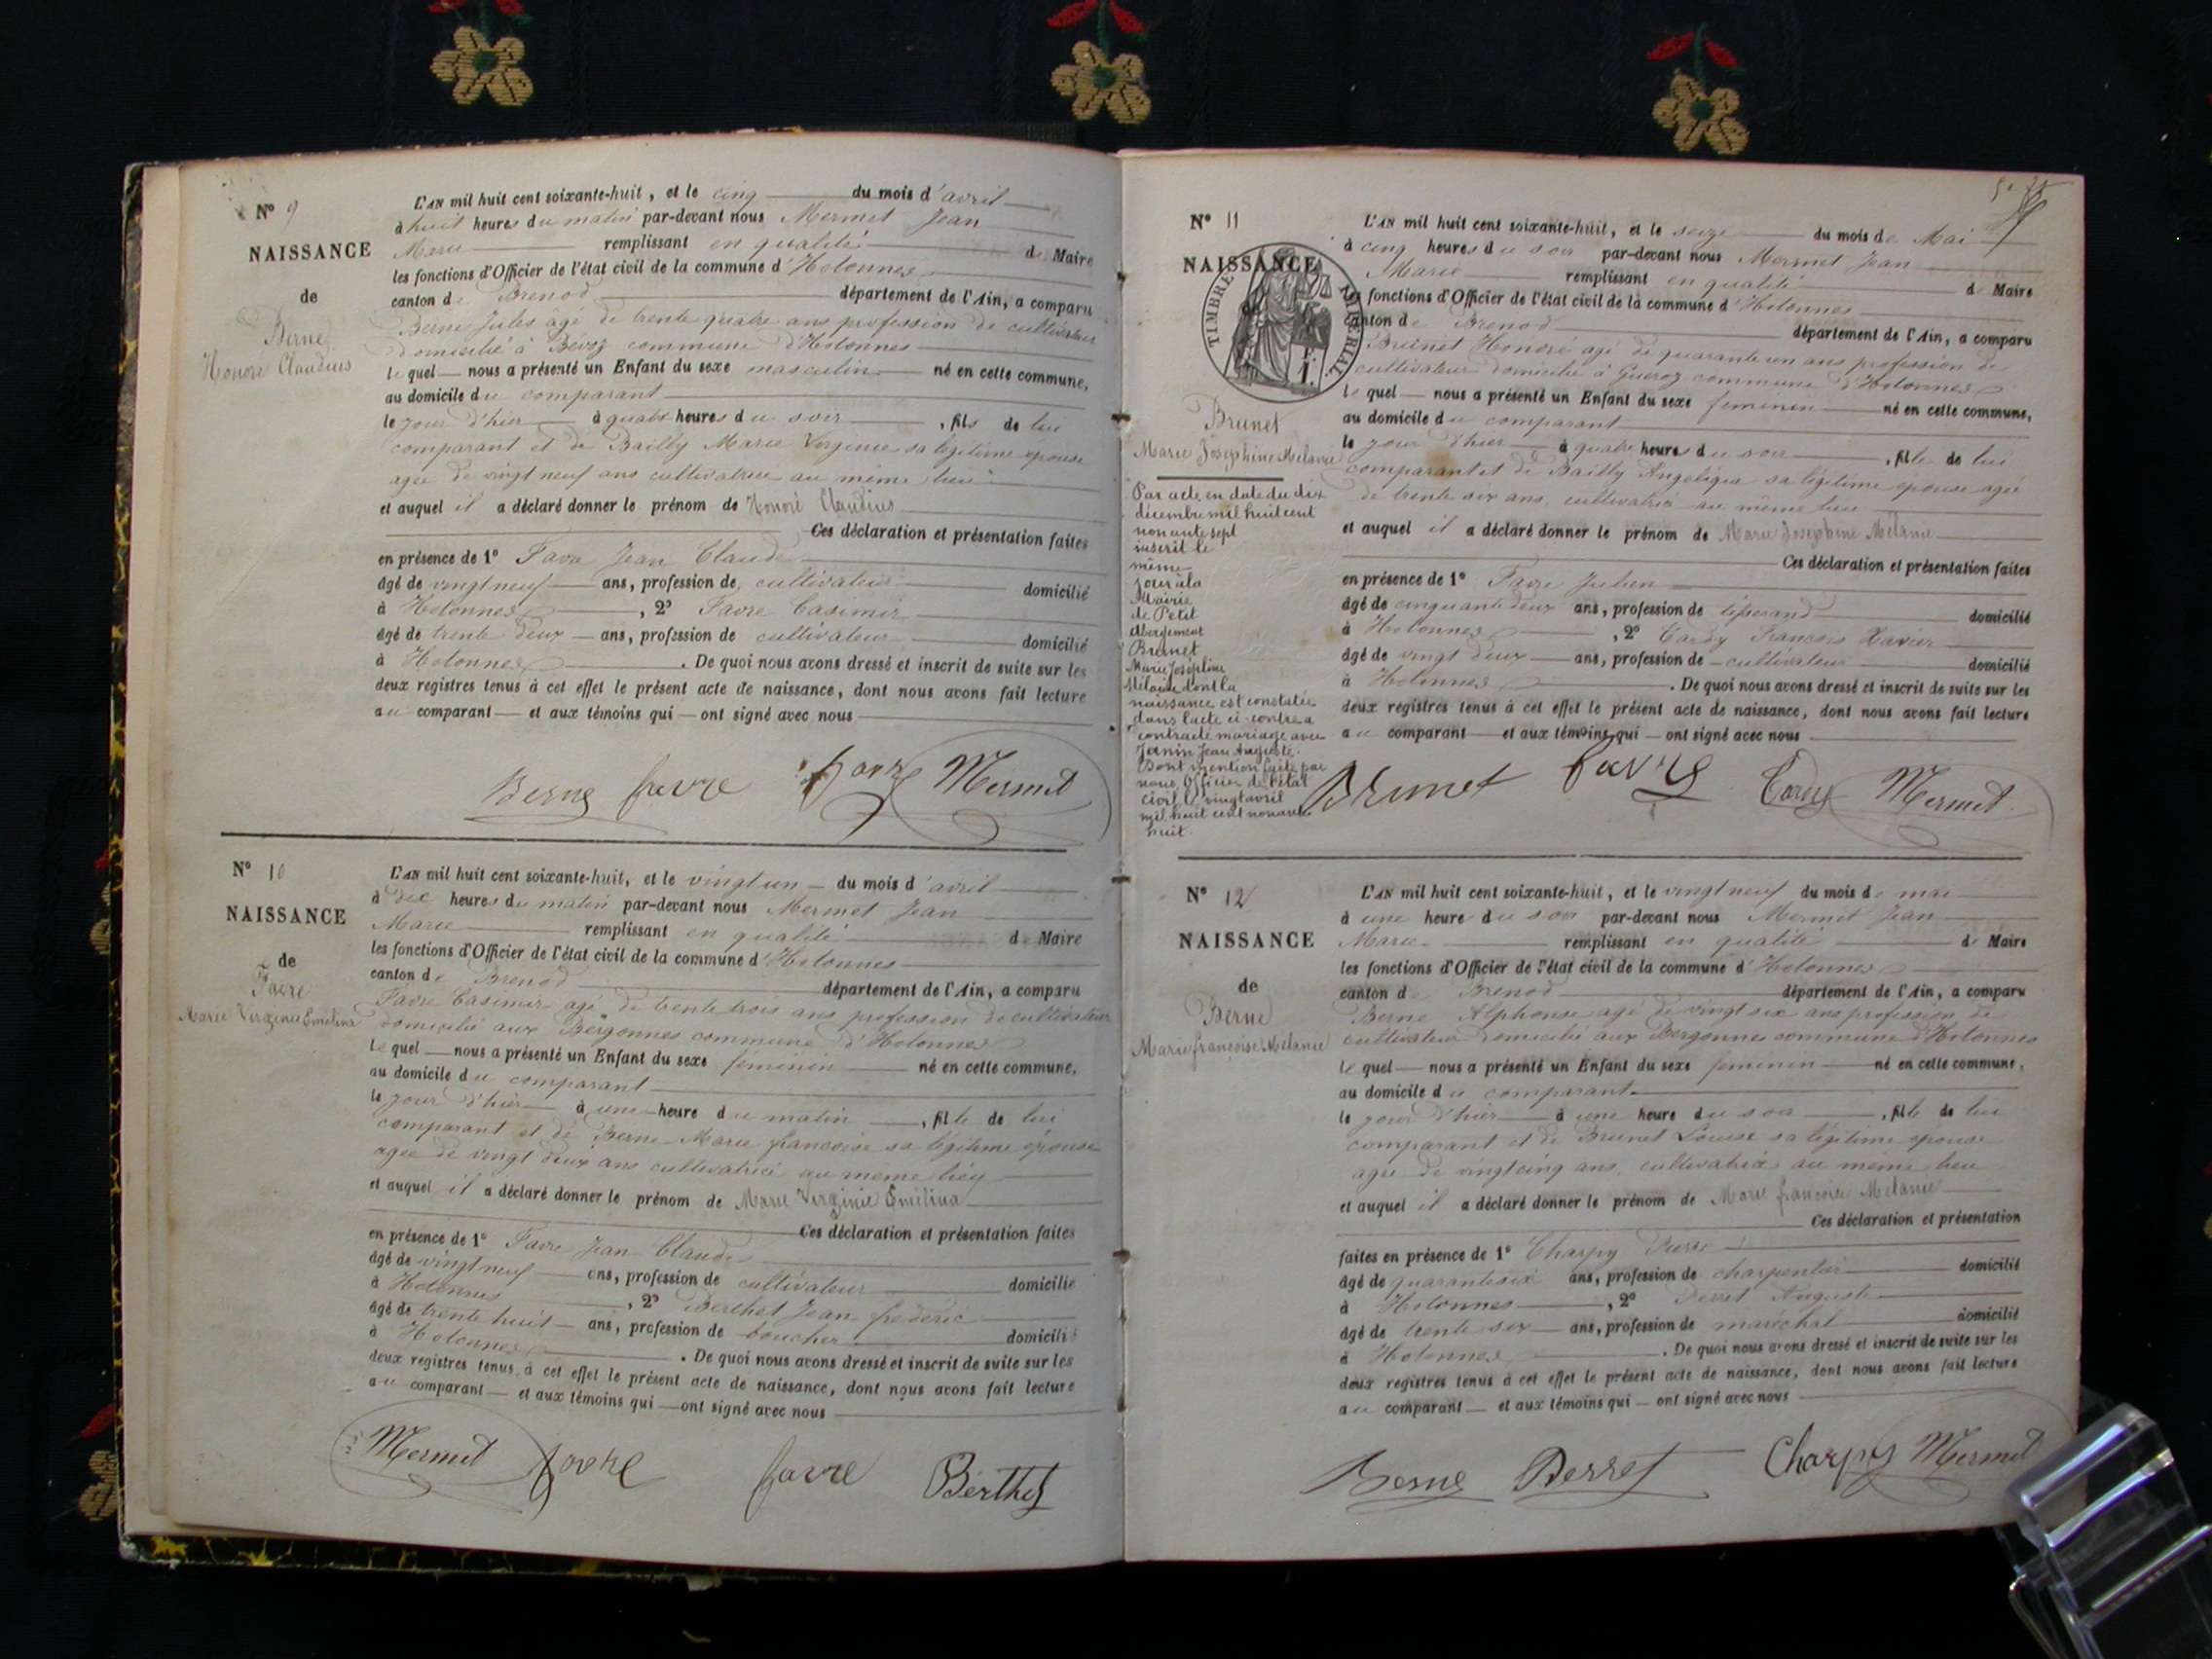 N° 9
NAISSANCE
de
Berne
Honoré Claudius
L'AN mil huit cent soixante-huit, et le cinq du mois d'avril
à huit heures du matin par-devant nous Mermet Jean
Marie remplissant en qualité de Maire
les fonctions d'Officier de l'état civil de la commune d'Hotonnes
canton de Brenod département de l'Ain, a comparu
Berne Jules agé de trente quatre ans profession de cultivateur
domicilié à Bevoz commune d'Hotonnes
le quel nous a présenté un Enfant du sexe masculin né en cette commune,
au domicile du comparant
le jour d'hier à quatre heures du soir, fils de lui
comparant et de Bailly Marie Virginie sa légitime épouse
agée de vingt neuf ans cultivatrice au même lieu
et auquel il a déclaré donner le prénom de Honoré Claudius
Ces déclaration et présentation faites
en présence de 1° Favre Jean Claude
âgé de vingt neuf ans, profession de cultivateur domicilié
à Hotonnes, 2° Favre Casimir
âgé de trente deux ans, profession de cultivateur domicilié
à Hotonnes. De quoi nous avons dressé et inscrit de suite sur les
deux registres tenus à cet effet le présent acte de naissance, dont nous avons fait lecture
au comparant et aux témoins qui ont signé avec nous
Berne favre favre Mermet
N° 10
NAISSANCE
de
Favre
Marie Virginie Emélina
L'AN mil huit cent soixante-huit, et le vingt un du mois d'avril
à dix heures du matin par-devant nous Mermet Jean
Marie remplissant en qualité de Maire
les fonctions d'Officier de l'état civil de la commune d'Hotonnes
canton de Brenod département de l'Ain, a comparu
Favre Casimir agé de trente trois ans profession de cultivateur
domicilié aux Bergonnes commune d'Hotonnes
le quel nous a présenté un Enfant du sexe féminin né en cette commune,
au domicile du comparant
le jour d'hier à une heure du matin, fille de lui
comparant et de Berne Marie françoise sa légitime épouse
agée de vingt deux ans cultivatrice au même lieu
et auquel il a déclaré donner le prénom de Marie Virginie Emélina
Ces déclaration et présentation faites
en présence de 1° Favre Jean Claude
âgé de vingt neuf ans, profession de cultivateur domicilié
à Hotonnes, 2° Berthet Jean frédéric
âgé de trente huit ans, profession de boucher domicilié
à Hotonnes. De quoi nous avons dressé et inscrit de suite sur les
deux registres tenus à cet effet le présent acte de naissance, dont nous avons fait lecture
au comparant et aux témoins qui ont signé avec nous
Mermet favre favre Berthet
N° 11
NAISSANCE
TIMBRE IMPÉRIAL
Brunet
Marie Joséphine Mélanie
Par acte en date du dix
décembre mil huit cent
nonante sept
inscrit le
même
jour à la
Mairie
de Petit
Abergement
Brunet
Marie Joséphine
Mélanie dont la
naissance est constatée
dans l'acte ci-contre a
contracté mariage avec
Janin Jean Auguste.
Dont mention faite par
nous Officier de l'état
civil le vingt avril
mil huit cent nonante
huit.
L'AN mil huit cent soixante-huit, et le seize du mois de Mai
à cinq heures du soir par-devant nous Mermet Jean
Marie remplissant en qualité de Maire
les fonctions d'Officier de l'état civil de la commune d'Hotonnes
canton de Brenod département de l'Ain, a comparu
Brunet Honoré agé de quarante un ans profession de
cultivateur domicilié à Gueroz commune d'Hotonnes
le quel nous a présenté un Enfant du sexe féminin né en cette commune,
au domicile du comparant
le jour d'hier à quatre heures du soir, fille de lui
comparant et de Bailly Angéliqua sa légitime épouse agée
de trente six ans, cultivatrice au même lieu
et auquel il a déclaré donner le prénom de Marie Joséphine Mélanie
Ces déclaration et présentation faites
en présence de 1° Favre Julien
âgé de cinquante deux ans, profession de tisserand domicilié
à Hotonnes, 2° Tardy François Xavier
âgé de vingt deux ans, profession de cultivateur domicilié
à Hotonnes. De quoi nous avons dressé et inscrit de suite sur les
deux registres tenus à cet effet le présent acte de naissance, dont nous avons fait lecture
au comparant et aux témoins qui ont signé avec nous
Brunet favre Tardy Mermet
N° 12
NAISSANCE
de
Berne
Marie françoise Mélanie
L'AN mil huit cent soixante-huit, et le vingt neuf du mois de mai
à une heure du soir par-devant nous Mermet Jean
Marie remplissant en qualité de Maire
les fonctions d'Officier de l'état civil de la commune d'Hotonnes
canton de Brenod département de l'Ain, a comparu
Berne Alphonse agé de vingt six ans profession de
cultivateur domicilié aux Bergonnes commune d'Hotonnes
le quel nous a présenté un Enfant du sexe féminin né en cette commune,
au domicile du comparant
le jour d'hier à une heure du soir, fille de lui
comparant et de Brunet Louise sa légitime épouse
agée de vingt cinq ans, cultivatrice au même lieu
et auquel il a déclaré donner le prénom de Marie françoise Mélanie
Ces déclaration et présentation
faites en présence de 1° Charpy Pierre
âgé de quarante six ans, profession de charpentier domicilié
à Hotonnes, 2° Perret Auguste
âgé de trente six ans, profession de maréchal domicilié
à Hotonnes. De quoi nous avons dressé et inscrit de suite sur les
deux registres tenus à cet effet le présent acte de naissance, dont nous avons fait lecture
au comparant et aux témoins qui ont signé avec nous
Berne Perret Charpy Mermet